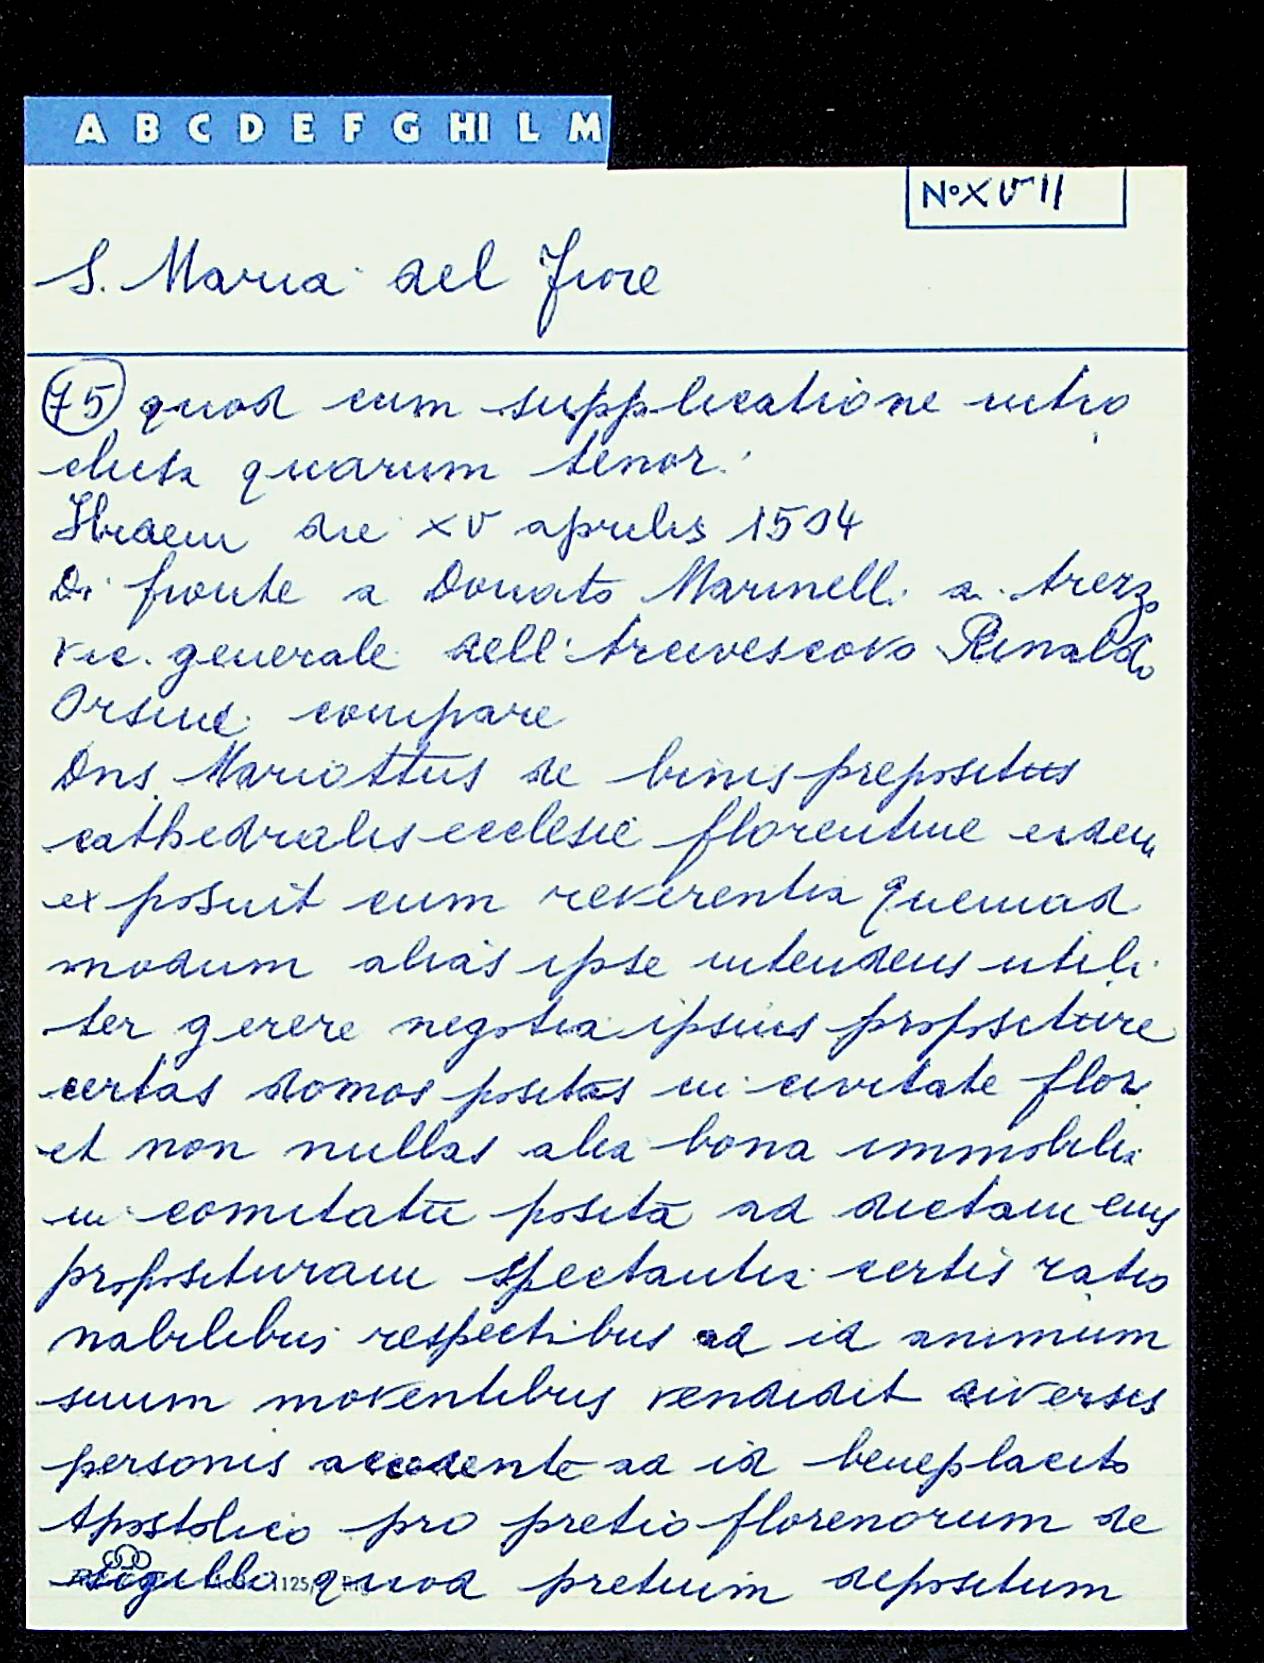 A B C D E F G HI L M
No XVII
S. Maria del Fiore
75 quod cum supplicatione intro
clusa quarum tenor.
Ibidem die XV aprilis 1504
Di fronte a Donato Marinelli a. Arezzo
vic. generale dell'Arcivescovo Rinaldo
Orsini compare
Dns Mariottus de binis prepositus
cathedralis ecclesie florentine eidem
exposuit cum reverentia quemad
modum alias ipse intendens utili
ter gerere negotia ipsius propositure
certas domos positas in civitate flor.
et non nullas alia bona immobilia
in comitatu posita ad dictam eius
proposituram spectantia certis ratio
nabilibus respectibus ad id animum
suum moventibus vendidit diversis
personis accedente ad id beneplacito
Apostolico pro pretio florenorum de
sigillo quod pretium depositum